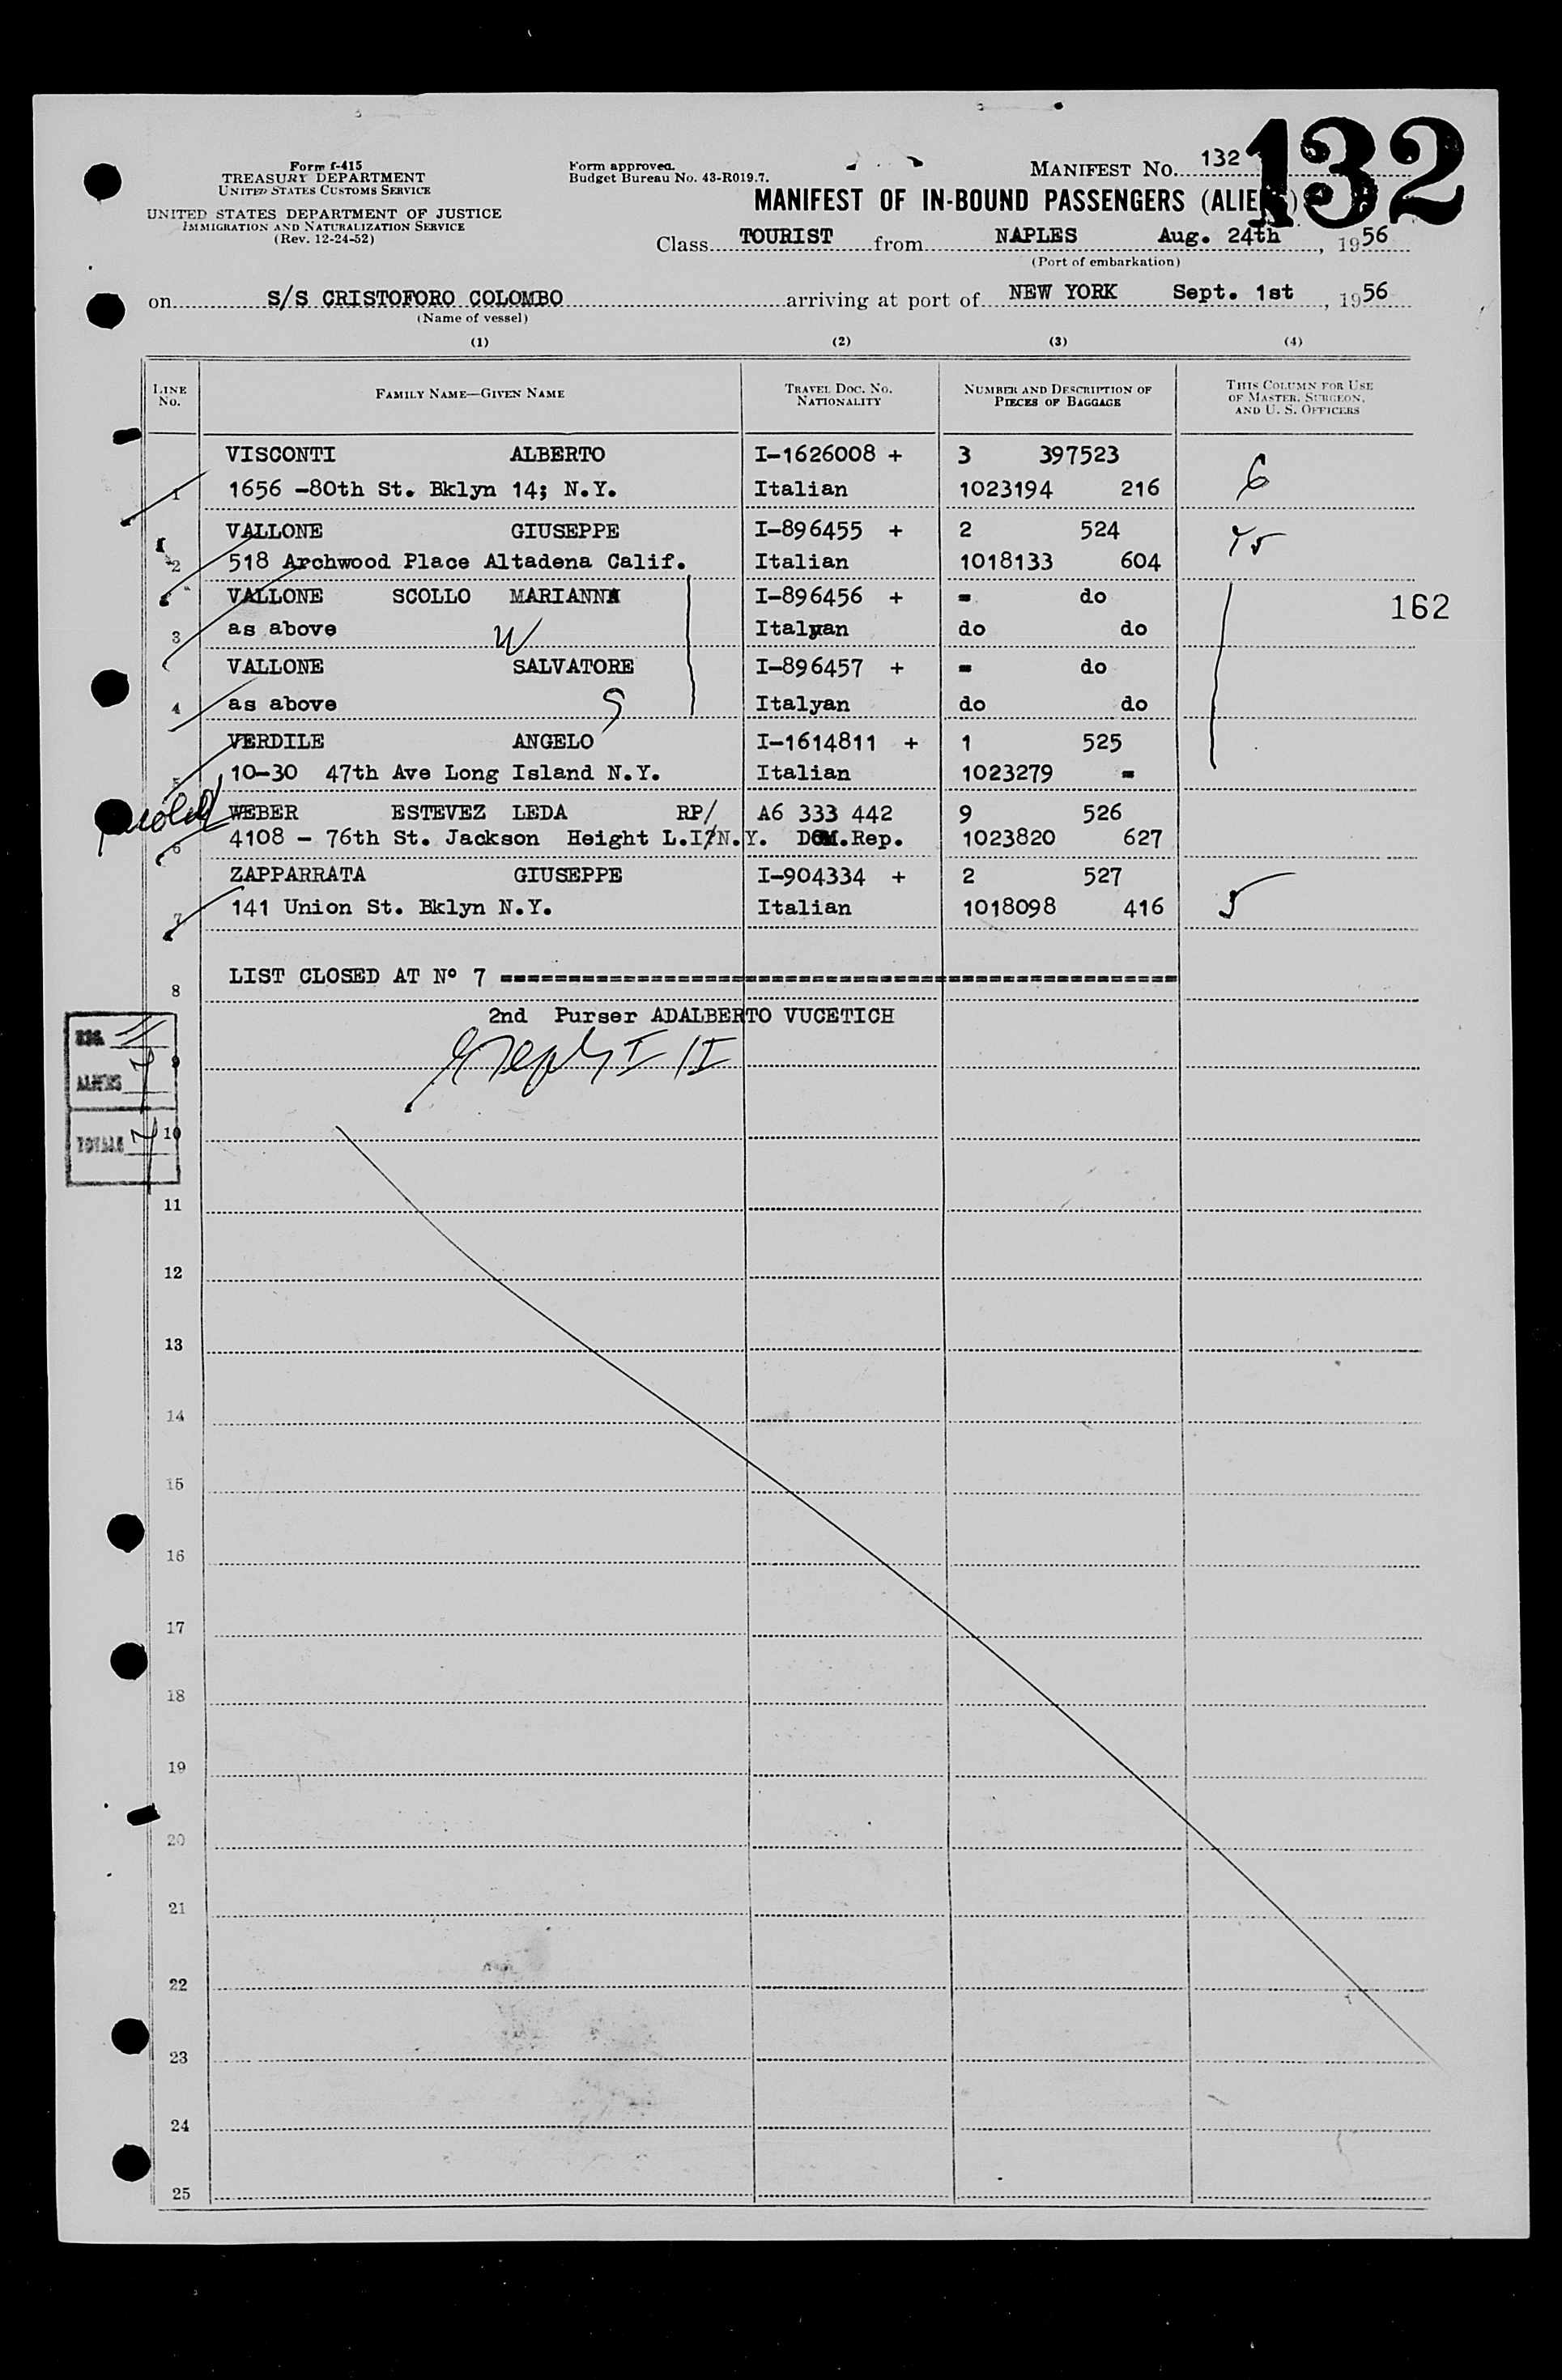 132
Form I-415
TREASURY DEPARTMENT
UNITED STATES CUSTOMS SERVICE
UNITED STATES DEPARTMENT OF JUSTICE
IMMIGRATION AND NATURALIZATION SERVICE
(Rev. 12-24-52)
Form approved.
Budget Bureau No. 43-R019.7.
MANIFEST No. 132
MANIFEST OF IN-BOUND PASSENGERS (ALIE
Class TOURIST from NAPLES Aug. 24th, 1956
(Port of embarkation)
on S/S CRISTOFORO COLOMBO arriving at port of NEW YORK Sept. 1st, 1956
(Name of vessel)
(1) (2) (3) (4)
LINE No. FAMILY NAME—GIVEN NAME TRAVEL DOC. NO. NATIONALITY NUMBER AND DESCRIPTION OF PIECES OF BAGGAGE THIS COLUMN FOR USE OF MASTER, SURGEON, AND U. S. OFFICERS
VISCONTI ALBERTO I-1626008 + 3 397523 6
1 1656 -80th St. Bklyn 14; N.Y. Italian 1023194 216
VALLONE GIUSEPPE I-896455 + 2 524
2 518 Archwood Place Altadena Calif. Italian 1018133 604
VALLONE SCOLLO MARIANNA I-896456 + = do 162
3 as above W Italyan do do
VALLONE SALVATORE I-896457 + = do
4 as above S Italyan do do
VERDILE ANGELO I-1614811 + 1 525
5 10-30 47th Ave Long Island N.Y. Italian 1023279 =
WEBER ESTEVEZ LEDA RP/ A6 333 442 9 526
6 4108 - 76th St. Jackson Height L.I/N.Y. DOM.Rep. 1023820 627
ZAPPARRATA GIUSEPPE I-904334 + 2 527 5
7 141 Union St. Bklyn N.Y. Italian 1018098 416
8 LIST CLOSED AT Nº 7 ==================================================
2nd Purser ADALBERTO VUCETICH
USC.
9
ALIENS 7
10
TOTALS 7
11
12
13
14
15
16
17
18
19
20
21
22
23
24
25